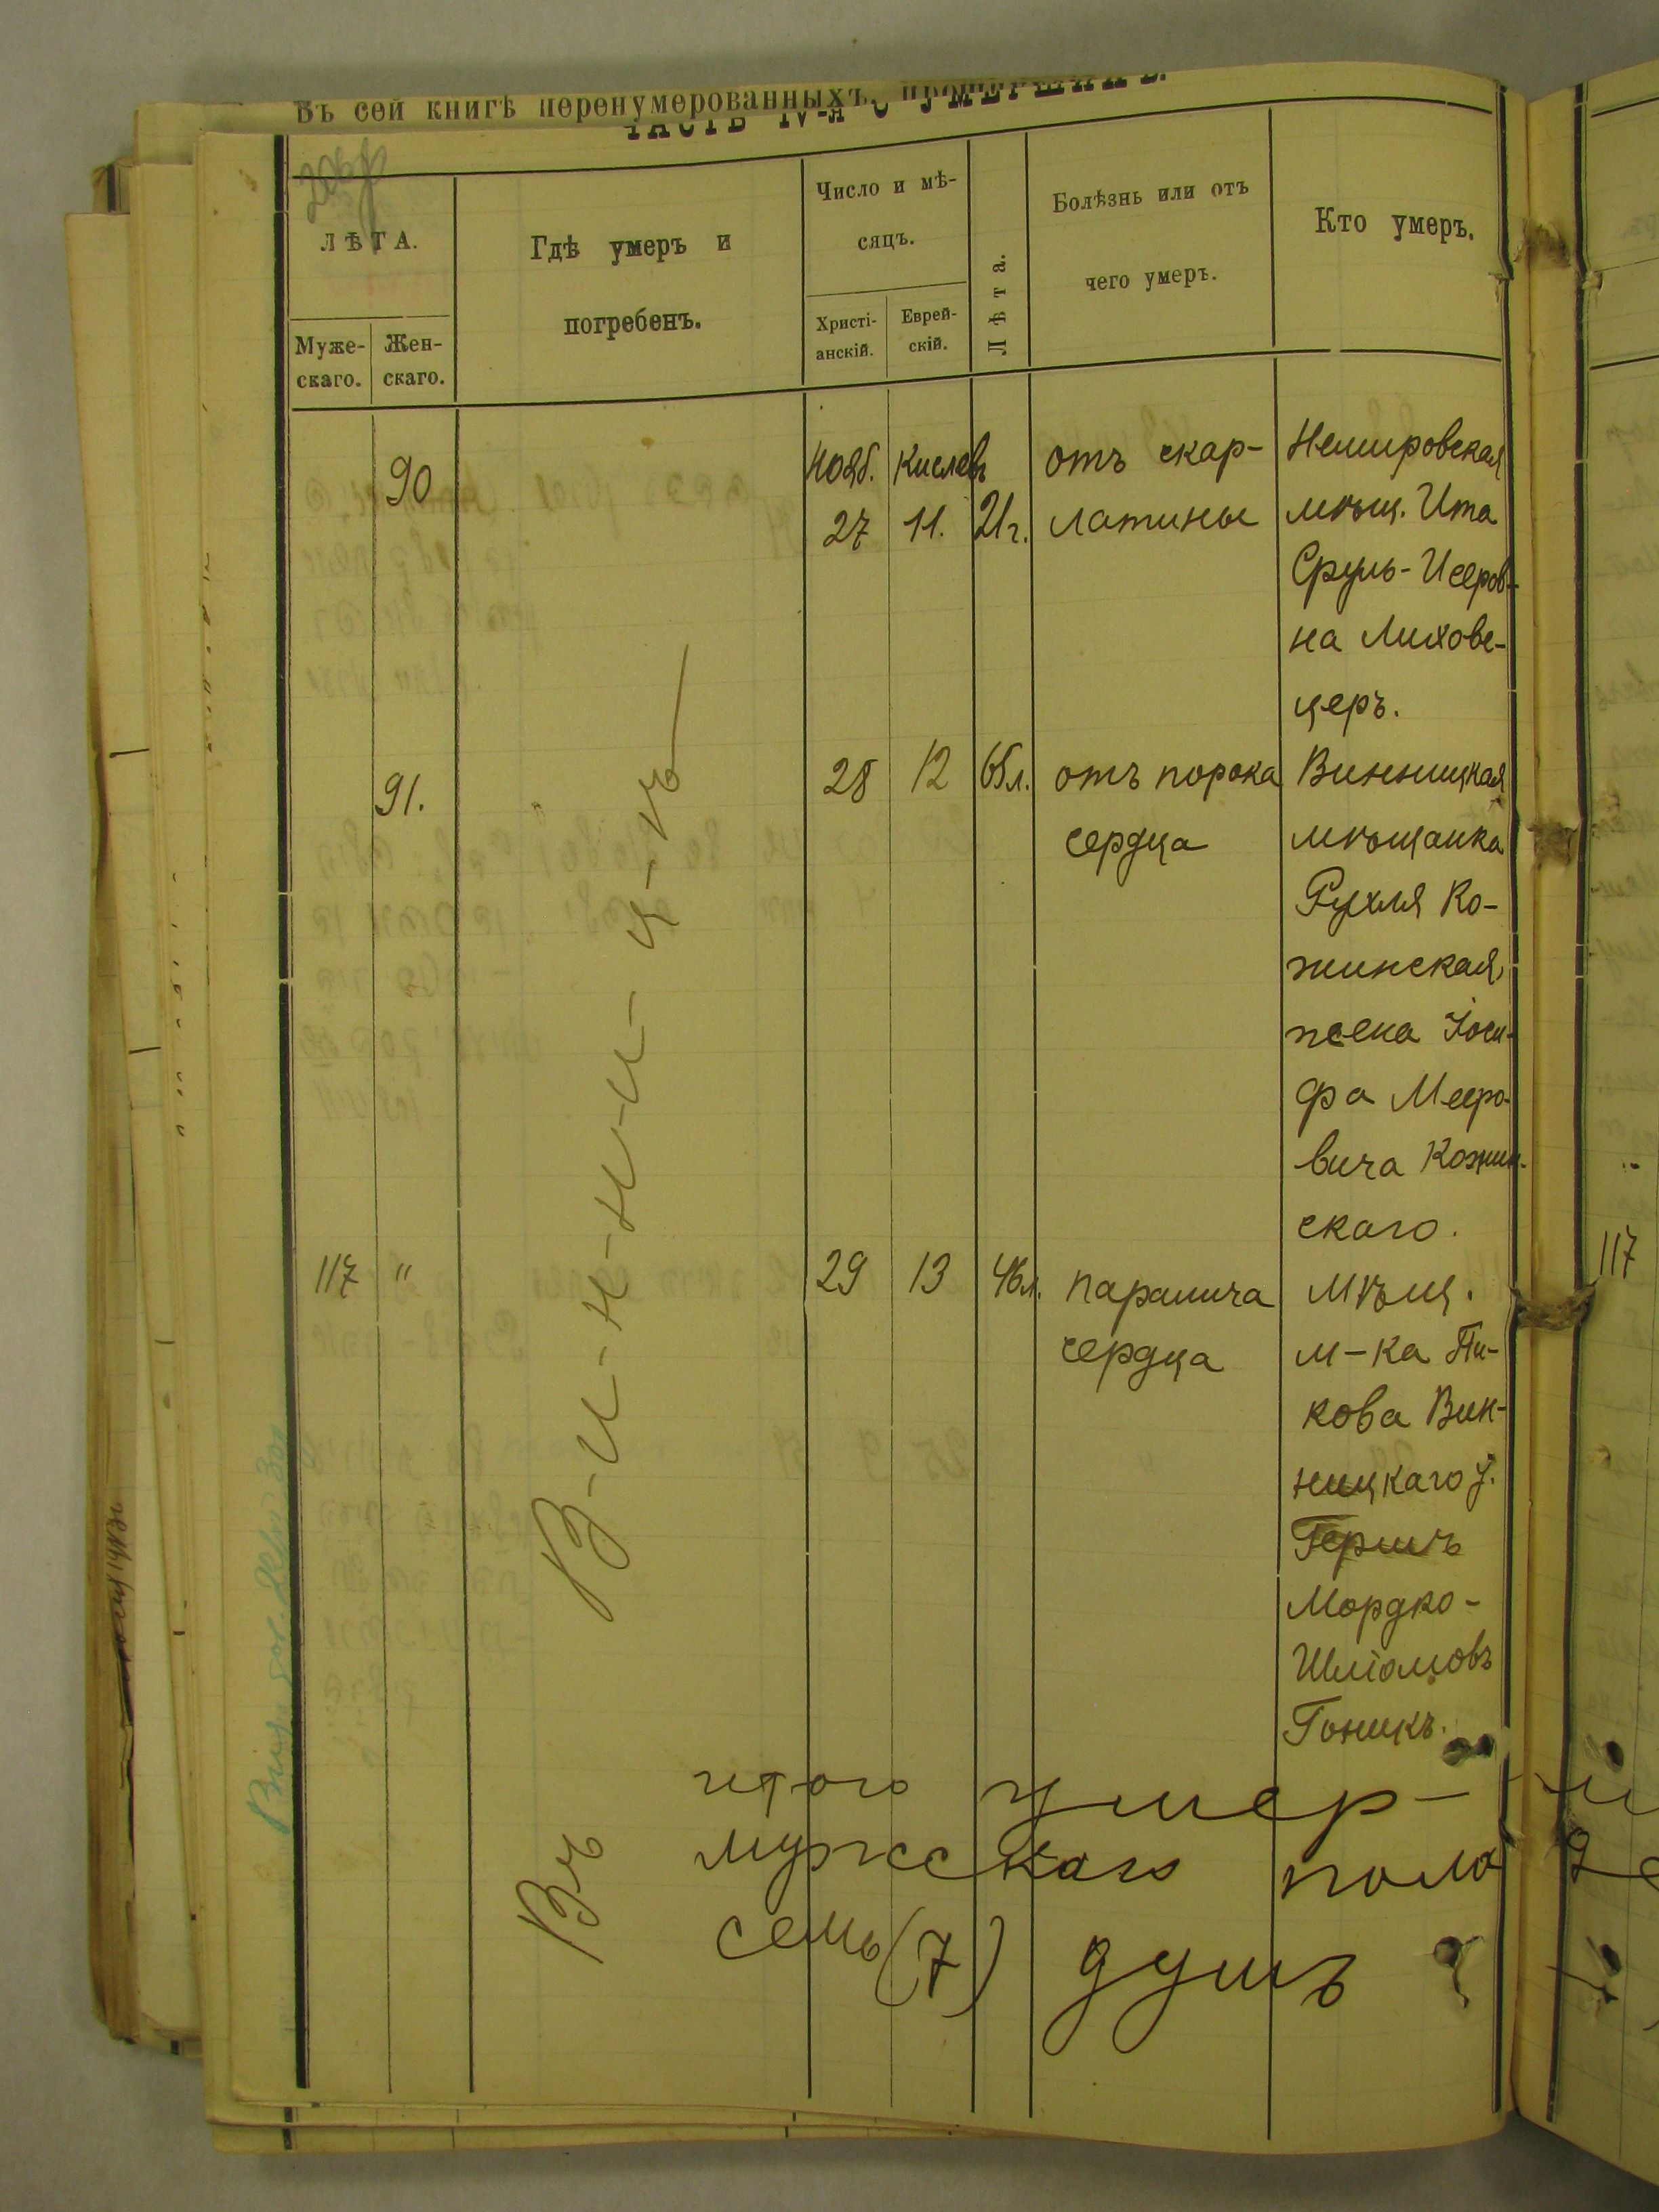 Въ сей книгѣ перенумерованныхъ,
ЧАСТЬ IV-я О УМЕРШИХЪ.
ЛѢТА.
Муже-
скаго.
Жен-
скаго.
Гдѣ умеръ и
погребенъ.
Число и мѣ-
сяцъ.
Христі-
анскій.
Еврей-
скій.
Лѣта.
Болѣзнь или отъ
чего умеръ.
Кто умеръ.
90 Нояб. Кислевъ отъ скар- Немировская
27 11. 21г. латины мѣщ. Ита
Сруль-Исеров-
на Лихове-
церъ.
91. 28 12 65л. отъ порока Винницкая
сердца мѣщанка
Рухля Ко-
жинская,
жена Іоси-
фа Мееро-
вича Кожин-
скаго.
117 " 29 13 46л. паралича мѣщ.
сердца м-ка Пи-
кова Вин-
ницкаго у.
Гершъ
Мордко-
Шліомовъ
Гоникъ.
Въ В-и-н-н-и-ц-ѣ
итого умер-
мужскаго пола
семь (7) душъ
117